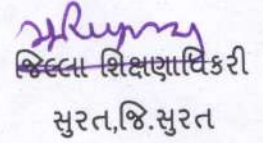 જિલ્લા શિક્ષણાધિકરી
સુરત,જિ.સુરત